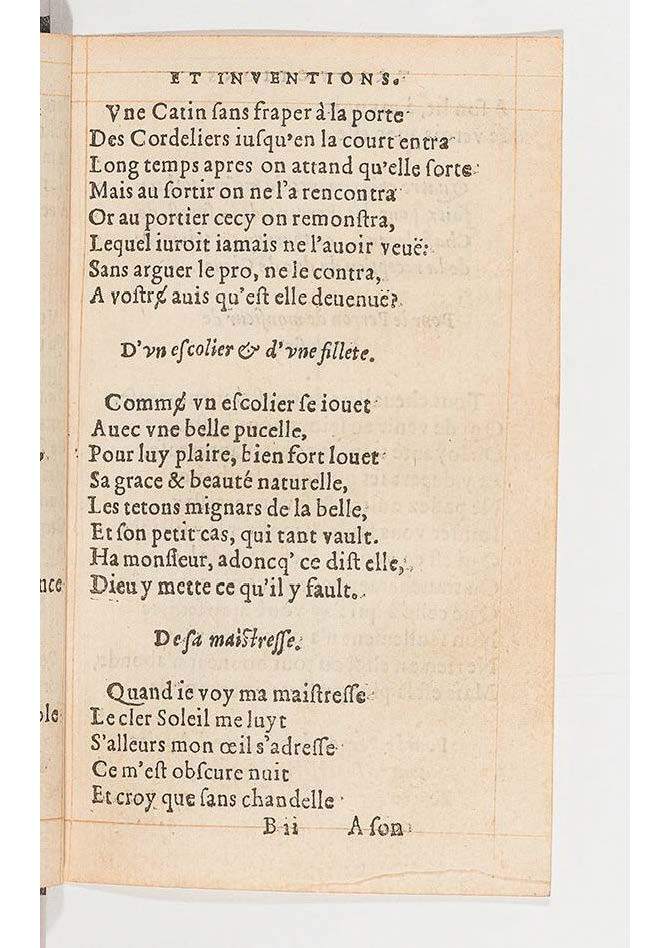 ET INVENTIONS.
Vne Catin ſans fraper à la porte
Des Cordeliers iuſqu'en la court entra
Long temps apres on attand qu'elle ſorte
Mais au ſortir on ne l'a rencontra
Or au portier cecy on remonſtra,
Lequel iuroit iamais ne l'auoir veuë:
Sans arguer le pro, ne le contra,
A voſtrɇ auis qu'eſt elle deuenuë?
D'vn eſcolier & d'vne fillete.
Commɇ vn eſcolier ſe iouet
Auec vne belle pucelle,
Pour luy plaire, bien fort louet
Sa grace & beauté naturelle,
Les tetons mignars de la belle,
Et ſon petit cas, qui tant vault.
Ha monſieur, adoncq' ce diſt elle,
Dieu y mette ce qu'il y fault.
De ſa maiſtreſſe.
Quand ie voy ma maiſtreſſe
Le cler Soleil me luyt
S'alleurs mon œil s'adreſſe
Ce m'eſt obſcure nuit
Et croy que ſans chandelle
B ii A ſon